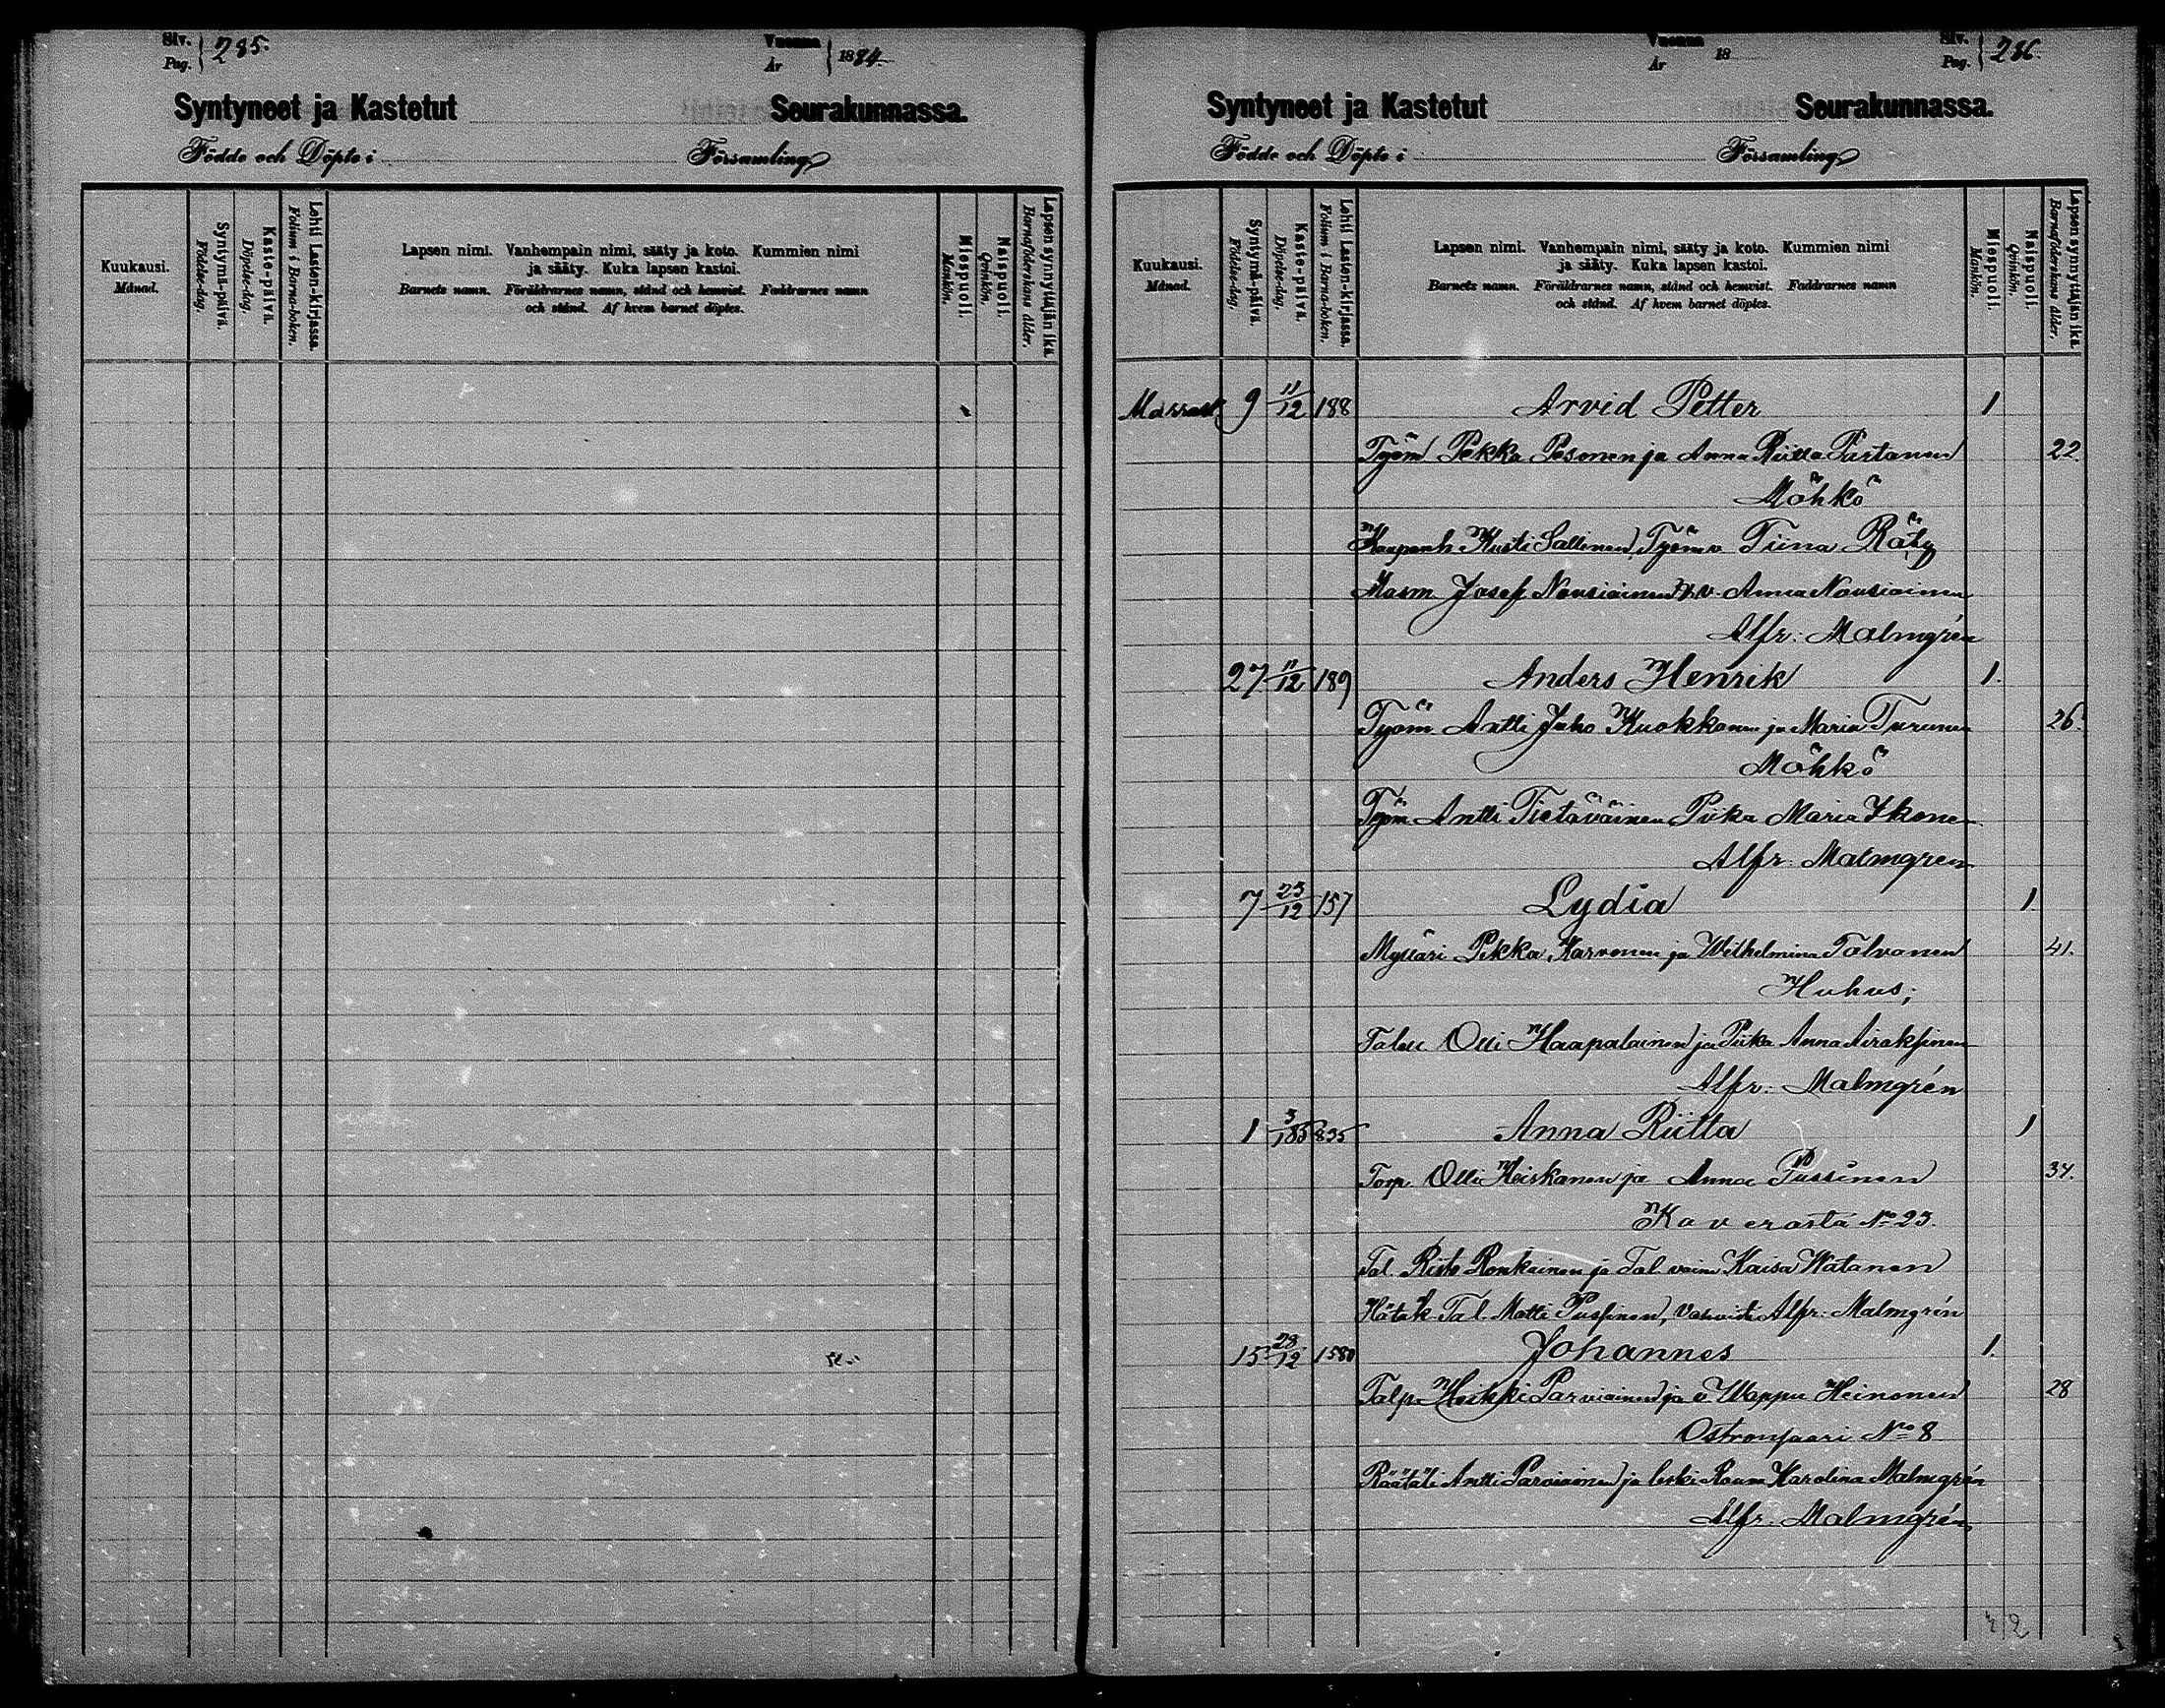 Siv. Pag. 285.
Vuonna År 1884.
Syntyneet ja Kastetut Seurakunnassa.
Födde och Döpte i Församling
Kuukausi. Månad.
Syntymä-päivä. Födelse-dag.
Kaste-päivä. Döpelse-dag.
Lehti Lasten-kirjassa. Folium i Barna-boken.
Lapsen nimi. Vanhempain nimi, sääty ja koto. Kummien nimi
ja sääty. Kuka lapsen kastoi.
Barnets namn. Föräldrarnes namn, stånd och hemvist. Faddrarnes namn
och stånd. Af hvem barnet döptes.
Miespuoli. Mankön.
Naispuoli. Qvinkön.
Lapsen synnyttäjän ikä. Barnaföderskans ålder.
Vuonna År 18
Siv. Pag. 286.
Syntyneet ja Kastetut Seurakunnassa.
Födde och Döpte i Församling
Kuukausi. Månad.
Syntymä-päivä. Födelse-dag.
Kaste-päivä. Döpelse-dag.
Lehti Lasten-kirjassa. Folium i Barna-boken.
Lapsen nimi. Vanhempain nimi, sääty ja koto. Kummien nimi
ja sääty. Kuka lapsen kastoi.
Barnets namn. Föräldrarnes namn, stånd och hemvist. Faddrarnes namn
och stånd. Af hvem barnet döptes.
Miespuoli. Mankön.
Naispuoli. Qvinkön.
Lapsen synnyttäjän ikä. Barnaföderskans ålder.
Marrask 9 11/12 188 Arvid Petter 1
Työm Pekka Pesonen ja Anna Riitta Partanen 22.
Möhkö
Kaupanh Kusti Sallinen, Työmv Tiina Räty
Masm Josef Nousiainen v. Anna Nousiainen
Alfr: Malmgrén
27 11/12 189 Anders Henrik 1.
Työm Antti Juho Kuokkanen ja Maria Turunen 26.
Möhkö
Työm Antti Tietäväinen Piika Maria Ikonen
Alfr: Malmgren
7 23/12 157 Lydia 1.
Mylläri Pekka Karvonen ja Wilhelmina Tolvanen 41.
Huhus;
Talou Olli Haapalainen ja Piika Anna Airaksinen
Alfr: Malmgrén
1 3/1 85 835 Anna Riitta 1
Torp. Olli Heiskanen ja Anna Pussinen 34.
Kaverasta No 23.
Tal. Risto Ronkainen ja Tal. vaimo Kaisa Watanen
Hätäk Tal. Matti Pussinen, Vahvisti Alfr: Malmgrén
15 28/12 1580 Johannes 1.
Talp Heikki Parviainen ja v Wappu Heinonen 28
Ostronsaari No 8
Räätäli Antti Parviainen ja leski Rouva Karolina Malmgrén
Alfr. Malmgrén
2